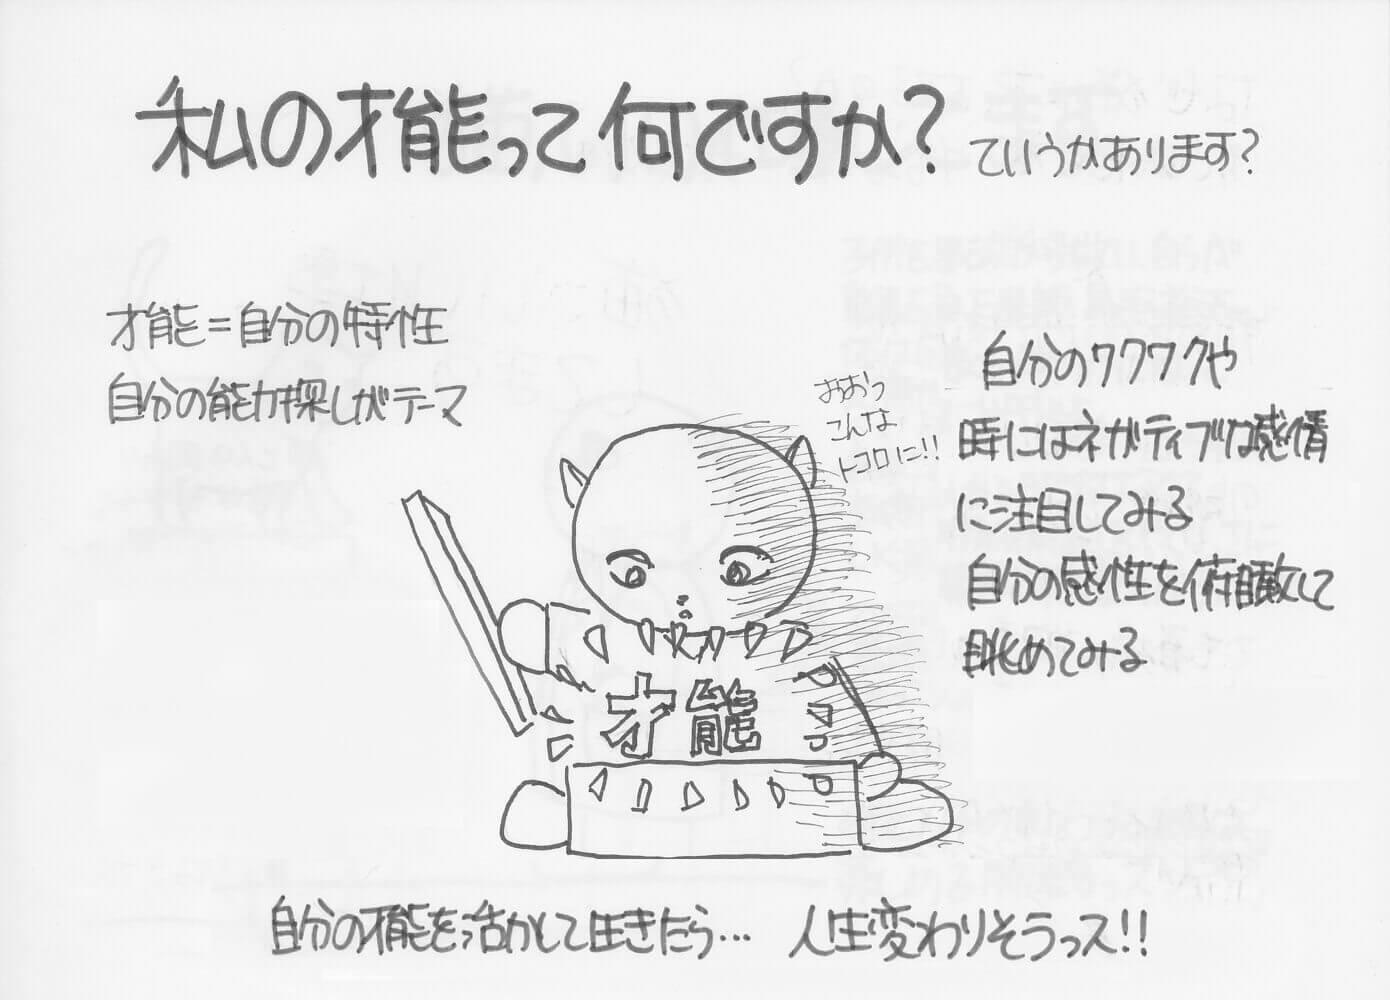 私の才能って何ですか？ ていうかあります？
才能＝自分の特性
自分の能力探しがテーマ
おおっ
こんな
トコロに!!
自分のワクワクや
時にはネガティブな感情
に注目してみる
自分の感性を俯瞰して
眺めてみる
才能
自分の才能を活かして生きたら… 人生変わりそうっス!!